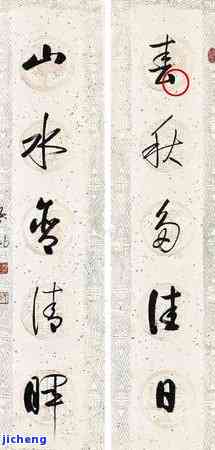 春秋多佳日
山水含清暉
jicheng